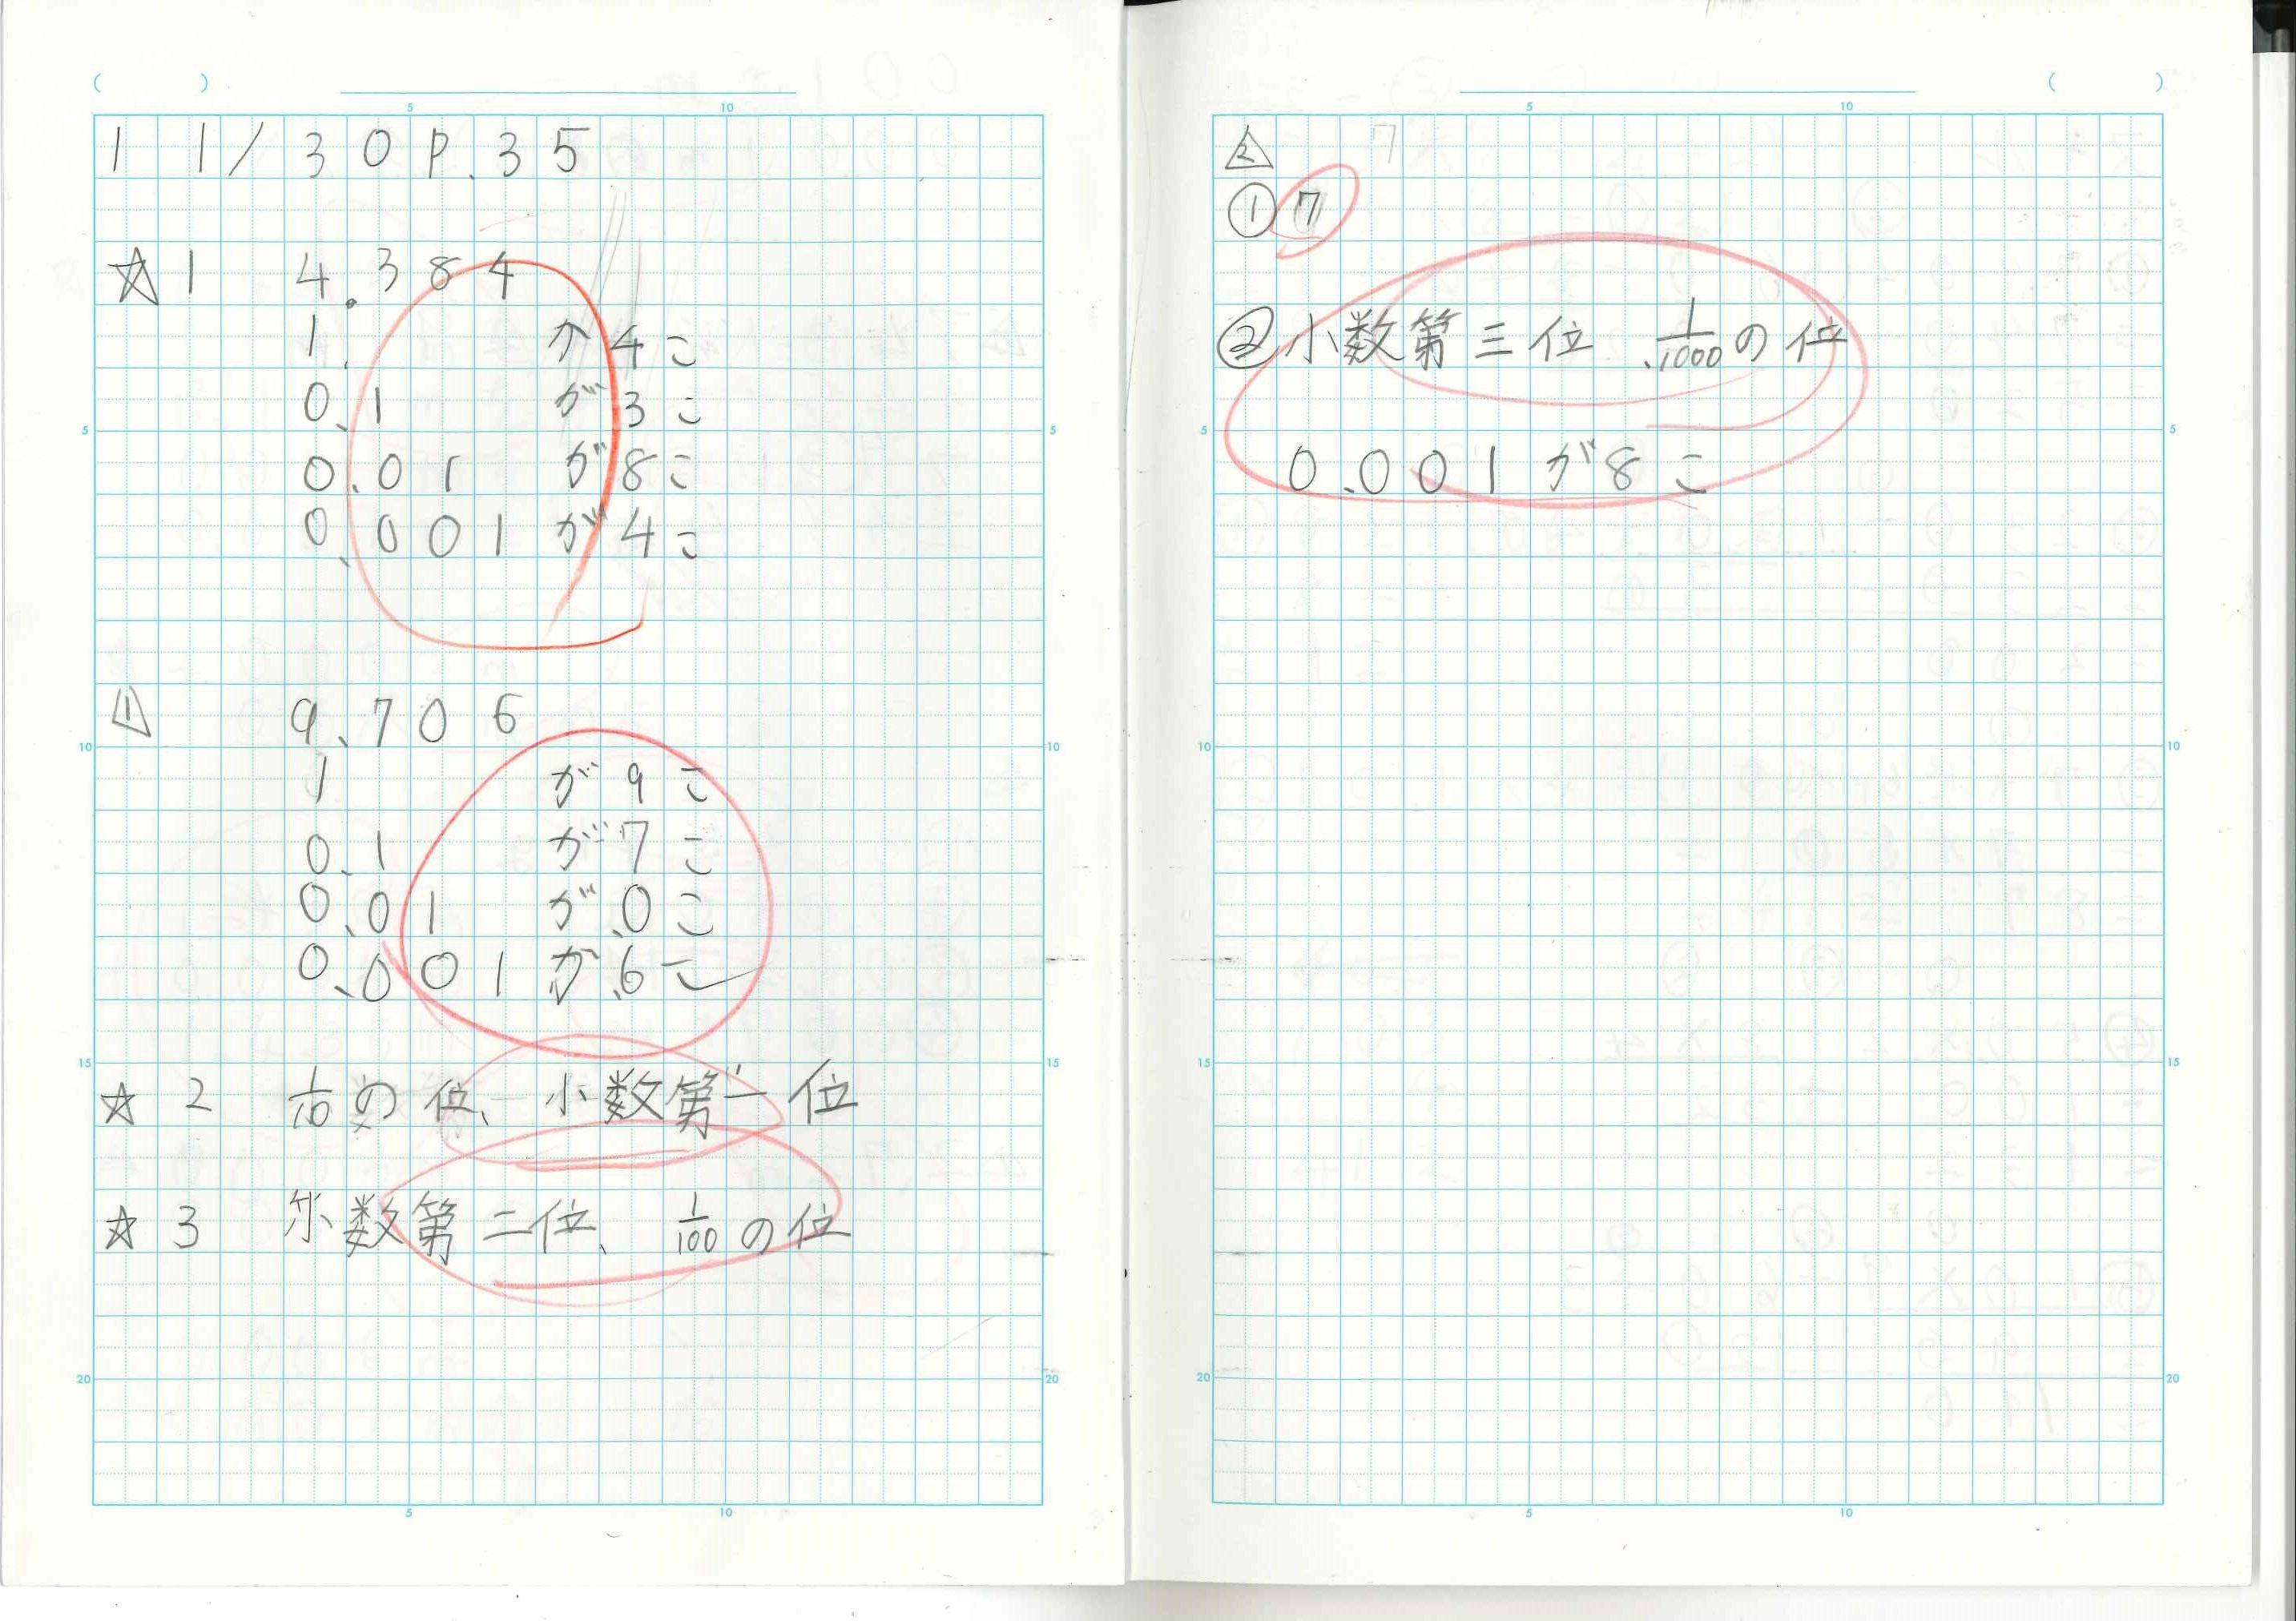 11/30 P.35
☆1 4.384
1 が4こ
0.1 が3こ
0.01 が8こ
0.001 が4こ
△1 9.706
1 が9こ
0.1 が7こ
0.01 が0こ
0.001 が6こ
☆2 1/10の位、小数第一位
☆3 小数第二位、1/100の位
△2
① 7
② 小数第三位、1/1000の位
0.001が8こ